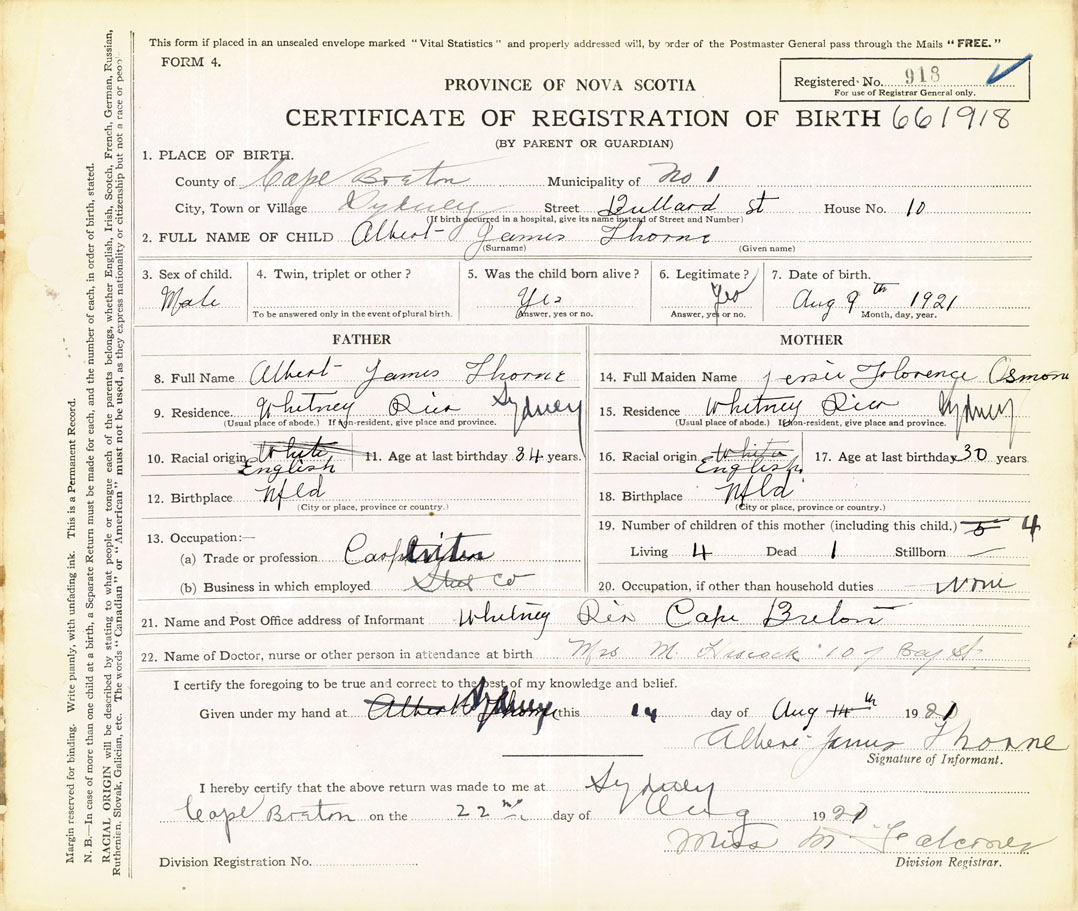 This form if placed in an unsealed envelope marked "Vital Statistics" and properly addressed will, by order of the Postmaster General pass through the Mails "FREE."
FORM 4.
Registered No. 918
For use of Registrar General only.
PROVINCE OF NOVA SCOTIA
CERTIFICATE OF REGISTRATION OF BIRTH 661918
(BY PARENT OR GUARDIAN)
1. PLACE OF BIRTH.
County of Cape Breton Municipality of No 1
City, Town or Village Sydney Street Bullard st House No. 10
(If birth occurred in a hospital, give its name instead of Street and Number)
2. FULL NAME OF CHILD Albert James Thorne
(Surname) (Given name)
3. Sex of child. 4. Twin, triplet or other? 5. Was the child born alive? 6. Legitimate? 7. Date of birth.
Male Yes Yes Aug 9th 1921
To be answered only in the event of plural birth. Answer, yes or no. Answer, yes or no. Month, day, year.
FATHER
8. Full Name Albert James Thorne
9. Residence Whitney Pier Sydney
(Usual place of abode.) If non-resident, give place and province.
10. Racial origin White 11. Age at last birthday 34 years.
English
12. Birthplace Nfld
(City or place, province or country.)
13. Occupation:—
(a) Trade or profession Carpenter
(b) Business in which employed Steel Co
MOTHER
14. Full Maiden Name Jessie Florence Osmond
15. Residence Whitney Pier Sydney
(Usual place of abode.) If non-resident, give place and province.
16. Racial origin White 17. Age at last birthday 30 years
English
18. Birthplace Nfld
(City or place, province or country.)
19. Number of children of this mother (including this child.) 5 4
Living 4 Dead 1 Stillborn —
20. Occupation, if other than household duties None
21. Name and Post Office address of Informant Whitney Pier Cape Breton
22. Name of Doctor, nurse or other person in attendance at birth Mrs M. 107 Bay St.
I certify the foregoing to be true and correct to the best of my knowledge and belief.
Given under my hand at Albert Thorne Sydney this 14 day of Aug 14th 1921
Albert James Thorne
Signature of Informant.
I hereby certify that the above return was made to me at Sydney
Cape Breton on the 22nd day of Aug 1921
Miss M Falconer
Division Registration No. Division Registrar.
Margin reserved for binding. Write plainly, with unfading ink. This is a Permanent Record.
N. B.—In case of more than one child at a birth, a Separate Return must be made for each, and the number of each, in order of birth, stated.
RACIAL ORIGIN will be described by stating to what people or tongue each of the parents belongs, whether English, Irish, Scotch, French, German, Russian,
Ruthenian, Slovak, Galician, etc. The words "Canadian" or "American" must not be used, as they express nationality or citizenship but not a race or people